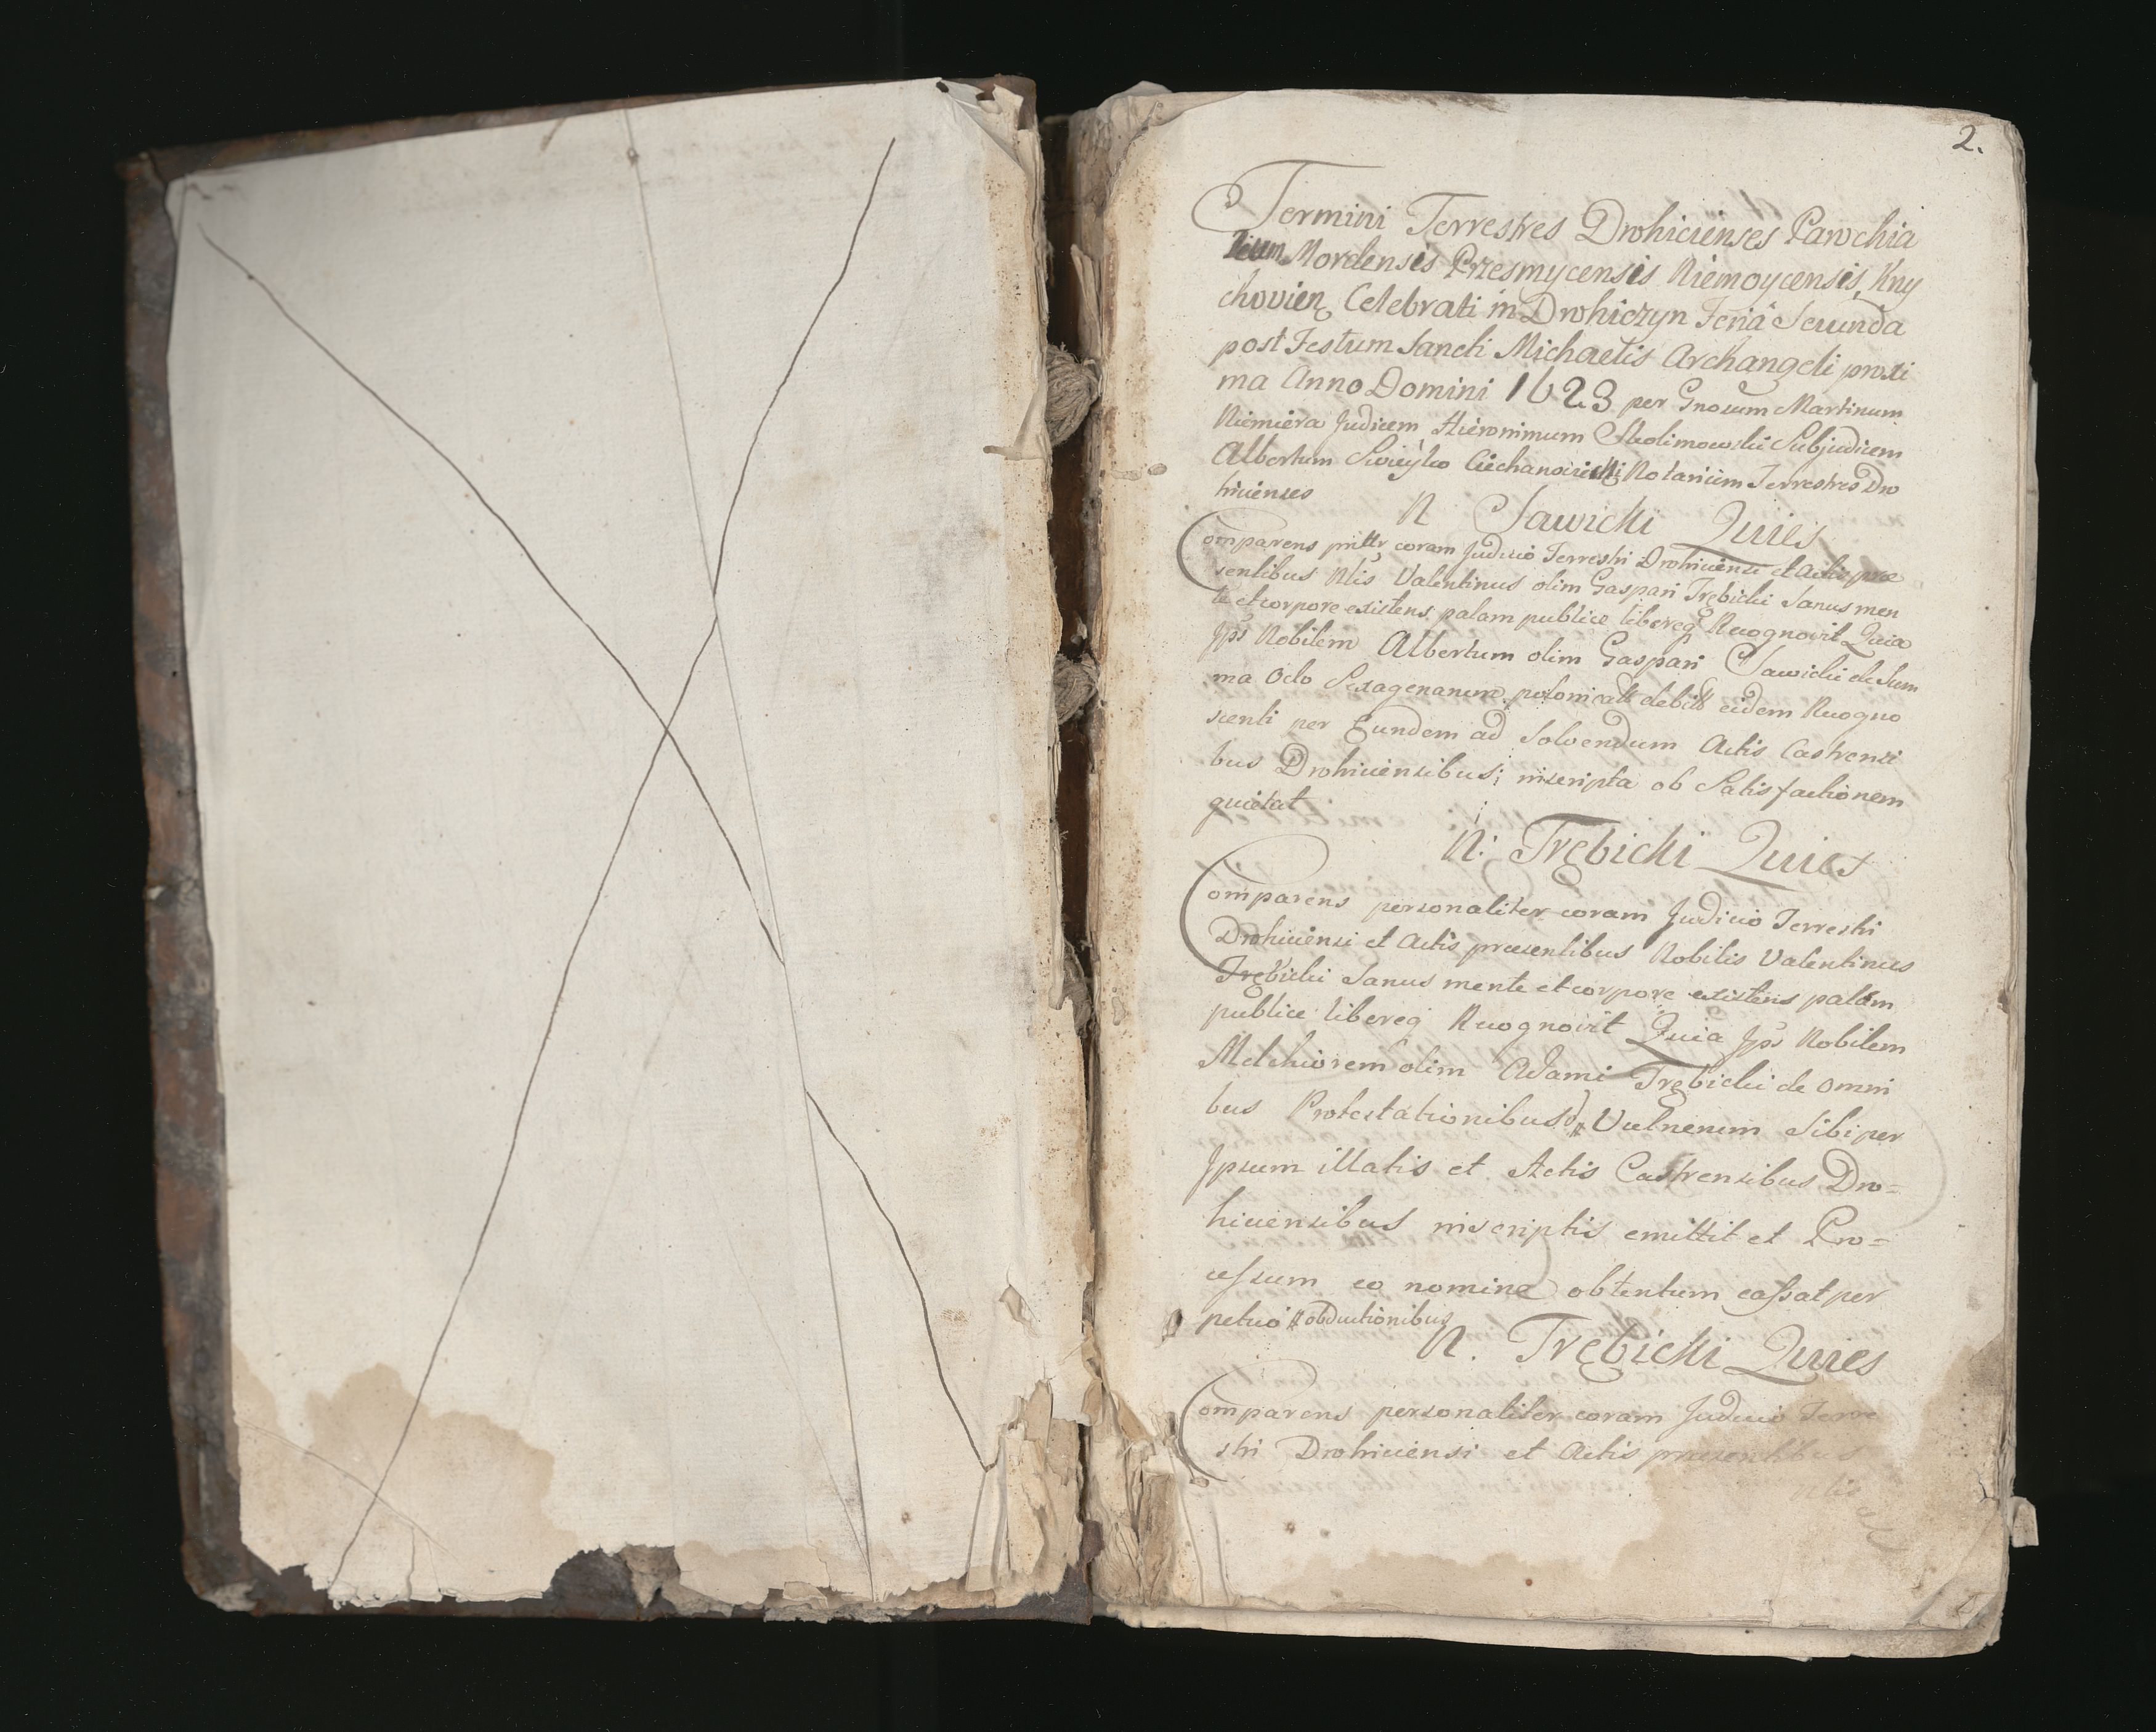 2.
Termini Terrestres Drohicienses Parochia
lium Mordensis Przesmycensis Niemoycensis, Kny
chovien Celebrati in Drohiczyn Feria Secunda
post Festum Sancti Michaelis Archangeli proxi
ma Anno Domini 1623 per Gnosum Martinum
Niemiera Judicem Hieronimum Skolimowski Subjudicem
Albertum Ciechanowiecki Notarium Terrestres Dro
hicienses
N Sawicki Quies
Comparens prsttr coram Judicio Terrestri Drohiciensi et Actis prae
sentibus Nlis Valentinus olim Gaspari Trębicki Sanus men
te et corpore existens palam publice libereq Recognovit Quia
Jps Nobilem Albertum olim Gaspari Sawicki de Sum
ma Octo Sexagenarum polonicall debitt eidem Recogno
scenti per Eundem ad Solvendum Actis Castrensi
bus Drohiciensibus inscripta ob Satisfactionem
quietat
N: Trębicki Quies
Comparens personaliter coram Judicio Terrestri
Drohiciensi et Actis praesentibus Nobilis Valentinus
Trębicki Sanus mente et corpore existens palam
publice libereq Recognovit Quia Jps Nobilem
Melchiorem olim Adami Trębicki de omni
bus Protestationibus Vulnerum Sibi per
Jpsum illatis et Actis Castrensibus Dro=
hiciensibus inscriptis emittit et Pro=
cessum eo nomine obtentum cassat per
petuo obductionibus
N. Trębicki Quies
Comparens personaliter coram Judicio Terre
stri Drohiciensi et Actis praesentibus
Nlis